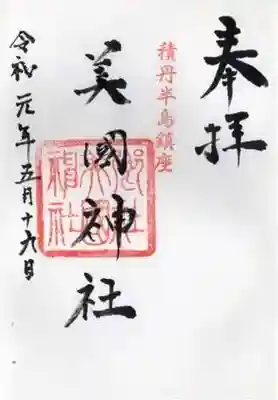 奉拝
積丹半島鎮座
美國神社
令和元年五月十九日